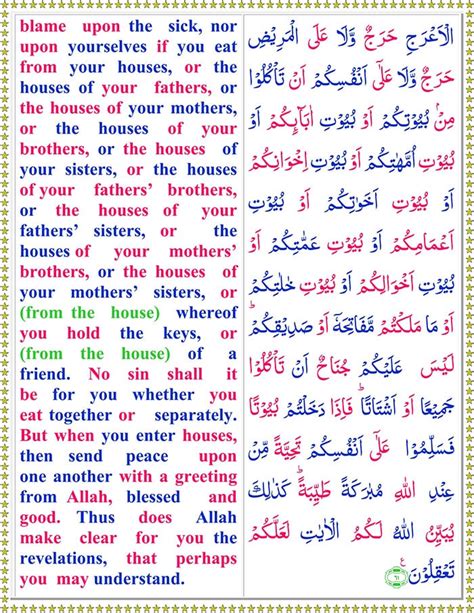 blame upon the sick, nor
upon yourselves if you eat
from your houses, or the
houses of your fathers, or
the houses of your mothers,
or the houses of your
brothers, or the houses of
your sisters, or the houses
of your fathers’ brothers,
or the houses of your
fathers’ sisters, or the
houses of your mothers’
brothers, or the houses of
your mothers’ sisters, or
(from the house) whereof
you hold the keys, or
(from the house) of a
friend. No sin shall it
be for you whether you
eat together or separately.
But when you enter houses,
then send peace upon
one another with a greeting
from Allah, blessed and
good. Thus does Allah
make clear for you the
revelations, that perhaps
you may understand.
الْاَعْرَجِ حَرَجٌ وَّلَا عَلَى الْمَرِيْضِ
حَرَجٌ وَّلَا عَلٰۤى اَنْفُسِكُمْ اَنْ تَاْكُلُوْا
مِنْۢ بُيُوْتِكُمْ اَوْ بُيُوْتِ اٰبَآىِٕكُمْ اَوْ
بُيُوْتِ اُمَّهٰتِكُمْ اَوْ بُيُوْتِ اِخْوَانِكُمْ
اَوْ بُيُوْتِ اَخَوٰتِكُمْ اَوْ بُيُوْتِ
اَعْمَامِكُمْ اَوْ بُيُوْتِ عَمّٰتِكُمْ اَوْ
بُيُوْتِ اَخْوَالِكُمْ اَوْ بُيُوْتِ خٰلٰتِكُمْ
اَوْ مَا مَلَكْتُمْ مَّفَاتِحَهٗۤ اَوْ صَدِيْقِكُمْؕ
لَيْسَ عَلَيْكُمْ جُنَاحٌ اَنْ تَاْكُلُوْا
جَمِيْعًا اَوْ اَشْتَاتًاؕ فَاِذَا دَخَلْتُمْ بُيُوْتًا
فَسَلِّمُوْا عَلٰۤى اَنْفُسِكُمْ تَحِيَّةً مِّنْ
عِنْدِ اللّٰهِ مُبٰرَكَةً طَيِّبَةًؕ كَذٰلِكَ
يُبَيِّنُ اللّٰهُ لَكُمُ الْاٰيٰتِ لَعَلَّكُمْ
تَعْقِلُوْنَ ۶۱ ع